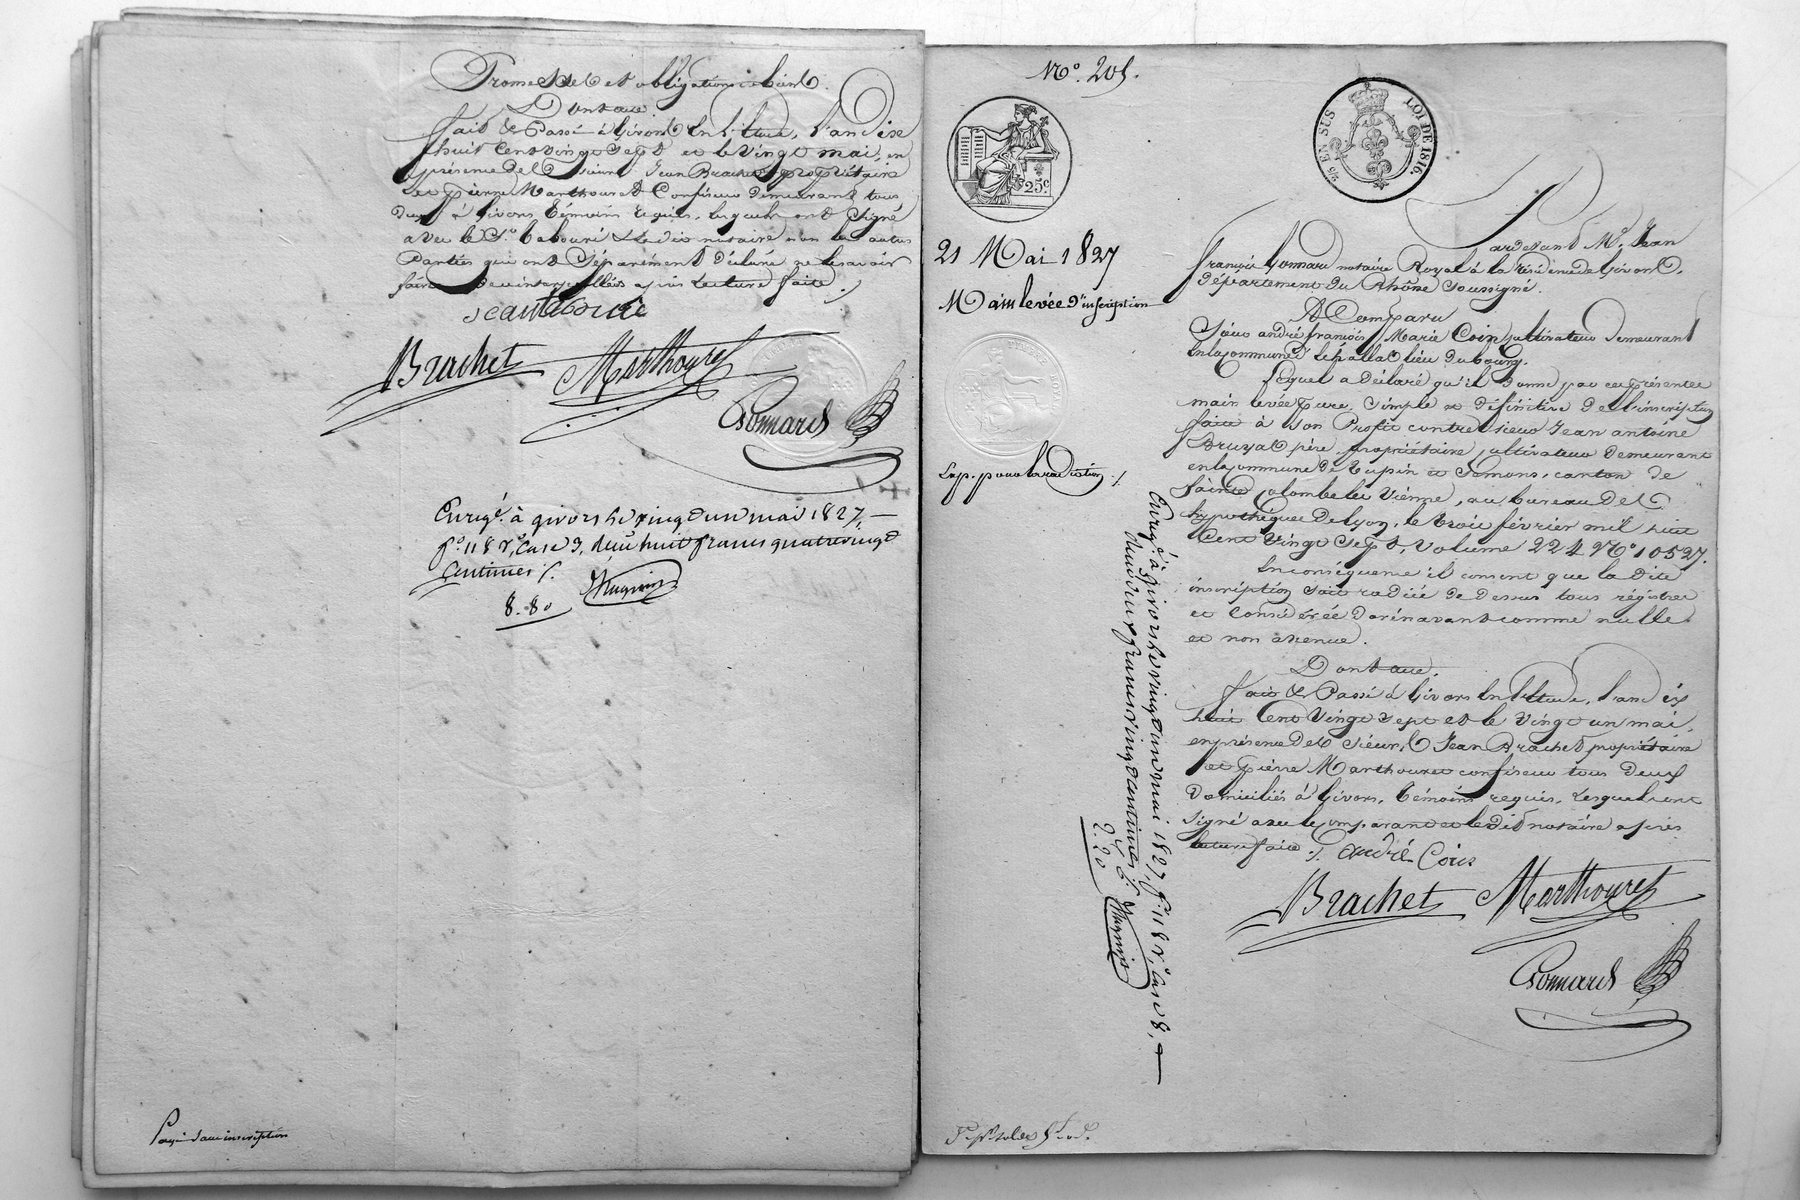 Promettel et obligations
Dont acte
fait & Passé à Givors En l'Etude, l'an dix
huit Cent vingt Sept et le vingt mai, en
présence de Sieurs Jean Brachet propriétaire
et pierre Marthouret Confiseur demeurant tous
deux à Givors, témoins requis, lesquels ont Signé
avec le Sr. et le dit notaire non les autres
Parties qui ont Séparément déclaré ne le savoir
faire de ce interpellées après lecture faite ./.
Brachet Marthouret
Bonnard
Enregé. à givors le vingt un mai 1827,
fo. 118 ro, Case 3, huit francs quatrevingt
Centimes ./.
8.80
Payé d'une inscription
No. 205.
25c.
25 EN SUS
LOI DE 1816.
21 Mai 1827
Main levée d'inscription
Exp. pour la radiation ./.
Enregé. à givors le vingt un mai 1827, fo. 118 ro, Case 8,
deux francs vingt centimes ./.
2.20
Pardevant Me. Jean
François Bonnard notaire Royal à la résidence de Givors,
Département du Rhône Soussigné.
A Comparu
Sieur andré françois Marie Coin cultivateur demeurant
en la commune d' lieu du bourg.
Lequel a déclaré qu'il donne par ces présentes
main levée pure, Simple et définitive de l'inscription
faite à Son Profit contre Sieur Jean antoine
Bruyat père propriétaire cultivateur demeurant
en la commune de Tupin et Semons, canton de
Sainte Colombe les Vienne, au bureau des
hypothèques de Lyon, le trois février mil huit
Cent Vingt Sept, Volume 224 No. 10527.
En conséquence il consent que la dite
inscription Soit radiée de dessus tous régistres
et Considérée dorénavant comme nulle
et non avenue.
Dont acte,
fait & Passé à Givors En l'Etude, l'an dix
huit Cent Vingt Sept et le Vingt un mai,
en présence des Sieurs Jean Brachet propriétaire
et pierre Marthouret confiseur tous deux
Domiciliés à Givors, témoins requis, lesquels ont
Signé avec le comparant et le dit notaire après
lecture faite ./. andré Coin
Brachet Marthouret
Bonnard